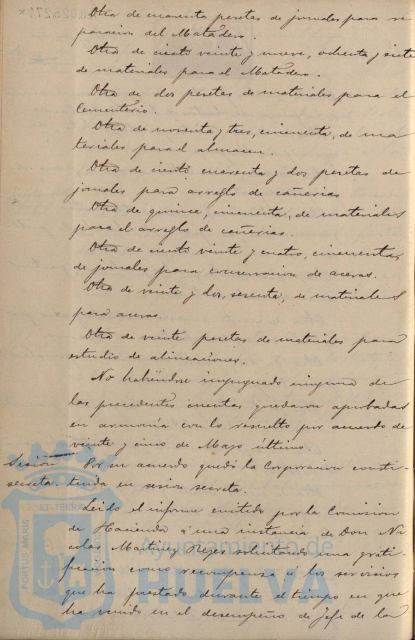 Otra de cuarenta pesetas de jornales para re
paración del Matadero.
Otra de ciento veinte y nueve, ochenta y siete
de materiales para el Matadero.
Otra de dos pesetas de materiales para el
Cementerio.
Otra de noventa y tres, cincuenta, de ma
teriales para el almacen.
Otra de ciento cuarenta y dos pesetas de
jornales para arreglo de cañerias
Otra de quince, cincuenta, de materiales
para el arreglo de cañerias.
Otra de ciento veinte y cuatro, cincuenta,
de jornales para conservacion de aceras.
Otra de veinte y dos, sesenta, de materiales
para aceras.
Otra de veinte pesetas de materiales para
estudio de alineaciones.
No habiéndose impugnado ninguna de
las precedentes cuentas quedaron aprobadas
en armonía con lo resuelto por acuerdo de
veinte y cinco de Mayo último.
Sesión
secreta
Por un acuerdo quedó la Corporacion consti-
tuida en sesion secreta.
Leido el informe emitido por la Comision
de Hacienda a una instancia de Don Ni
colas Reyes solicitando una grati
ficacion como recompensa a los servicios
que ha prestado durante el tiempo en que
ha venido en el desempeño de Jefe de la
PORTUS MARIS
Ayuntamiento de
HUELVA